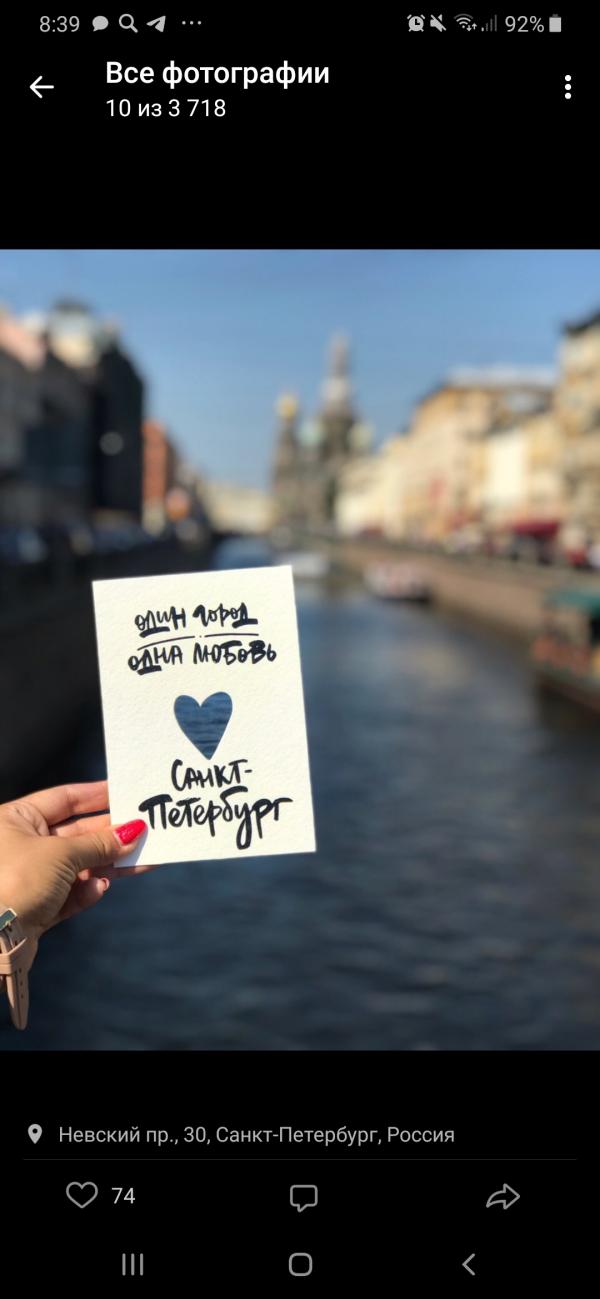 8:39
92%
Все фотографии
10 из 3 718
один город
одна любовь
Санкт-
Петербург
Невский пр., 30, Санкт-Петербург, Россия
74